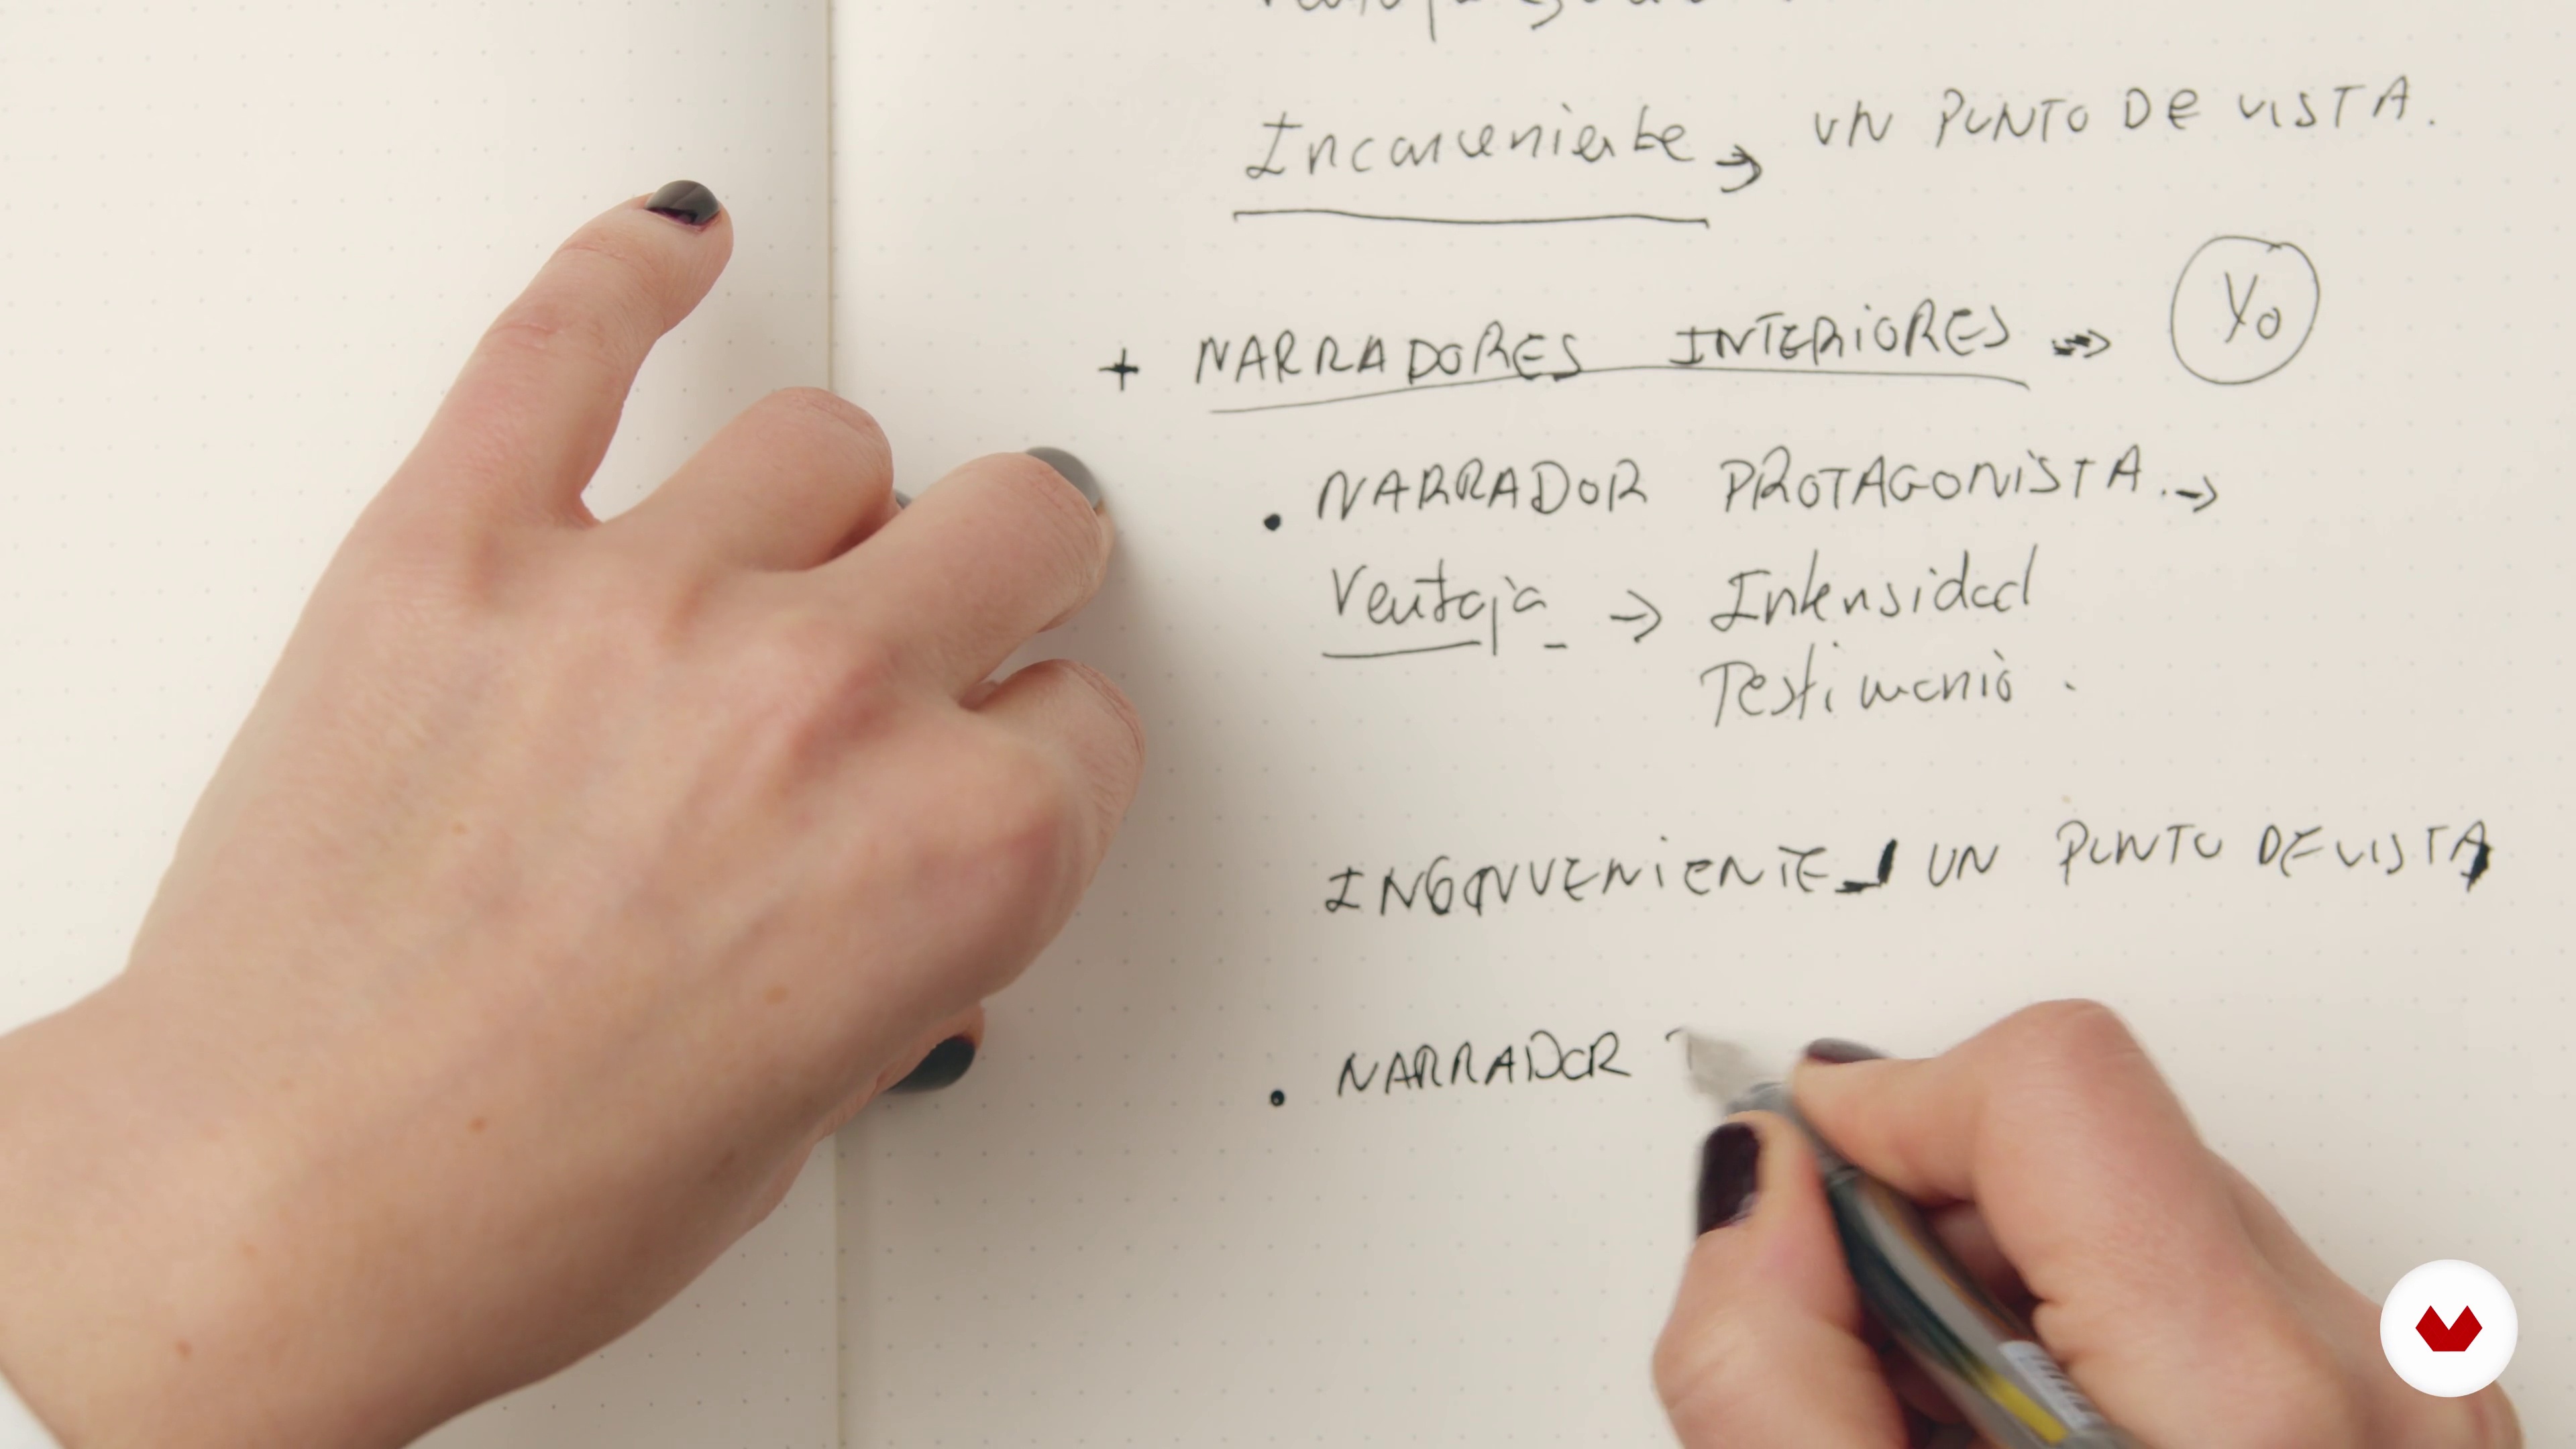 Inconveniente → UN PUNTO DE VISTA.
+ NARRADORES INTERIORES → Yo
• NARRADOR PROTAGONISTA. →
Ventaja → Intensidad
Testimonio.
INCONVENIENTE UN PUNTO DE VISTA
• NARRADOR